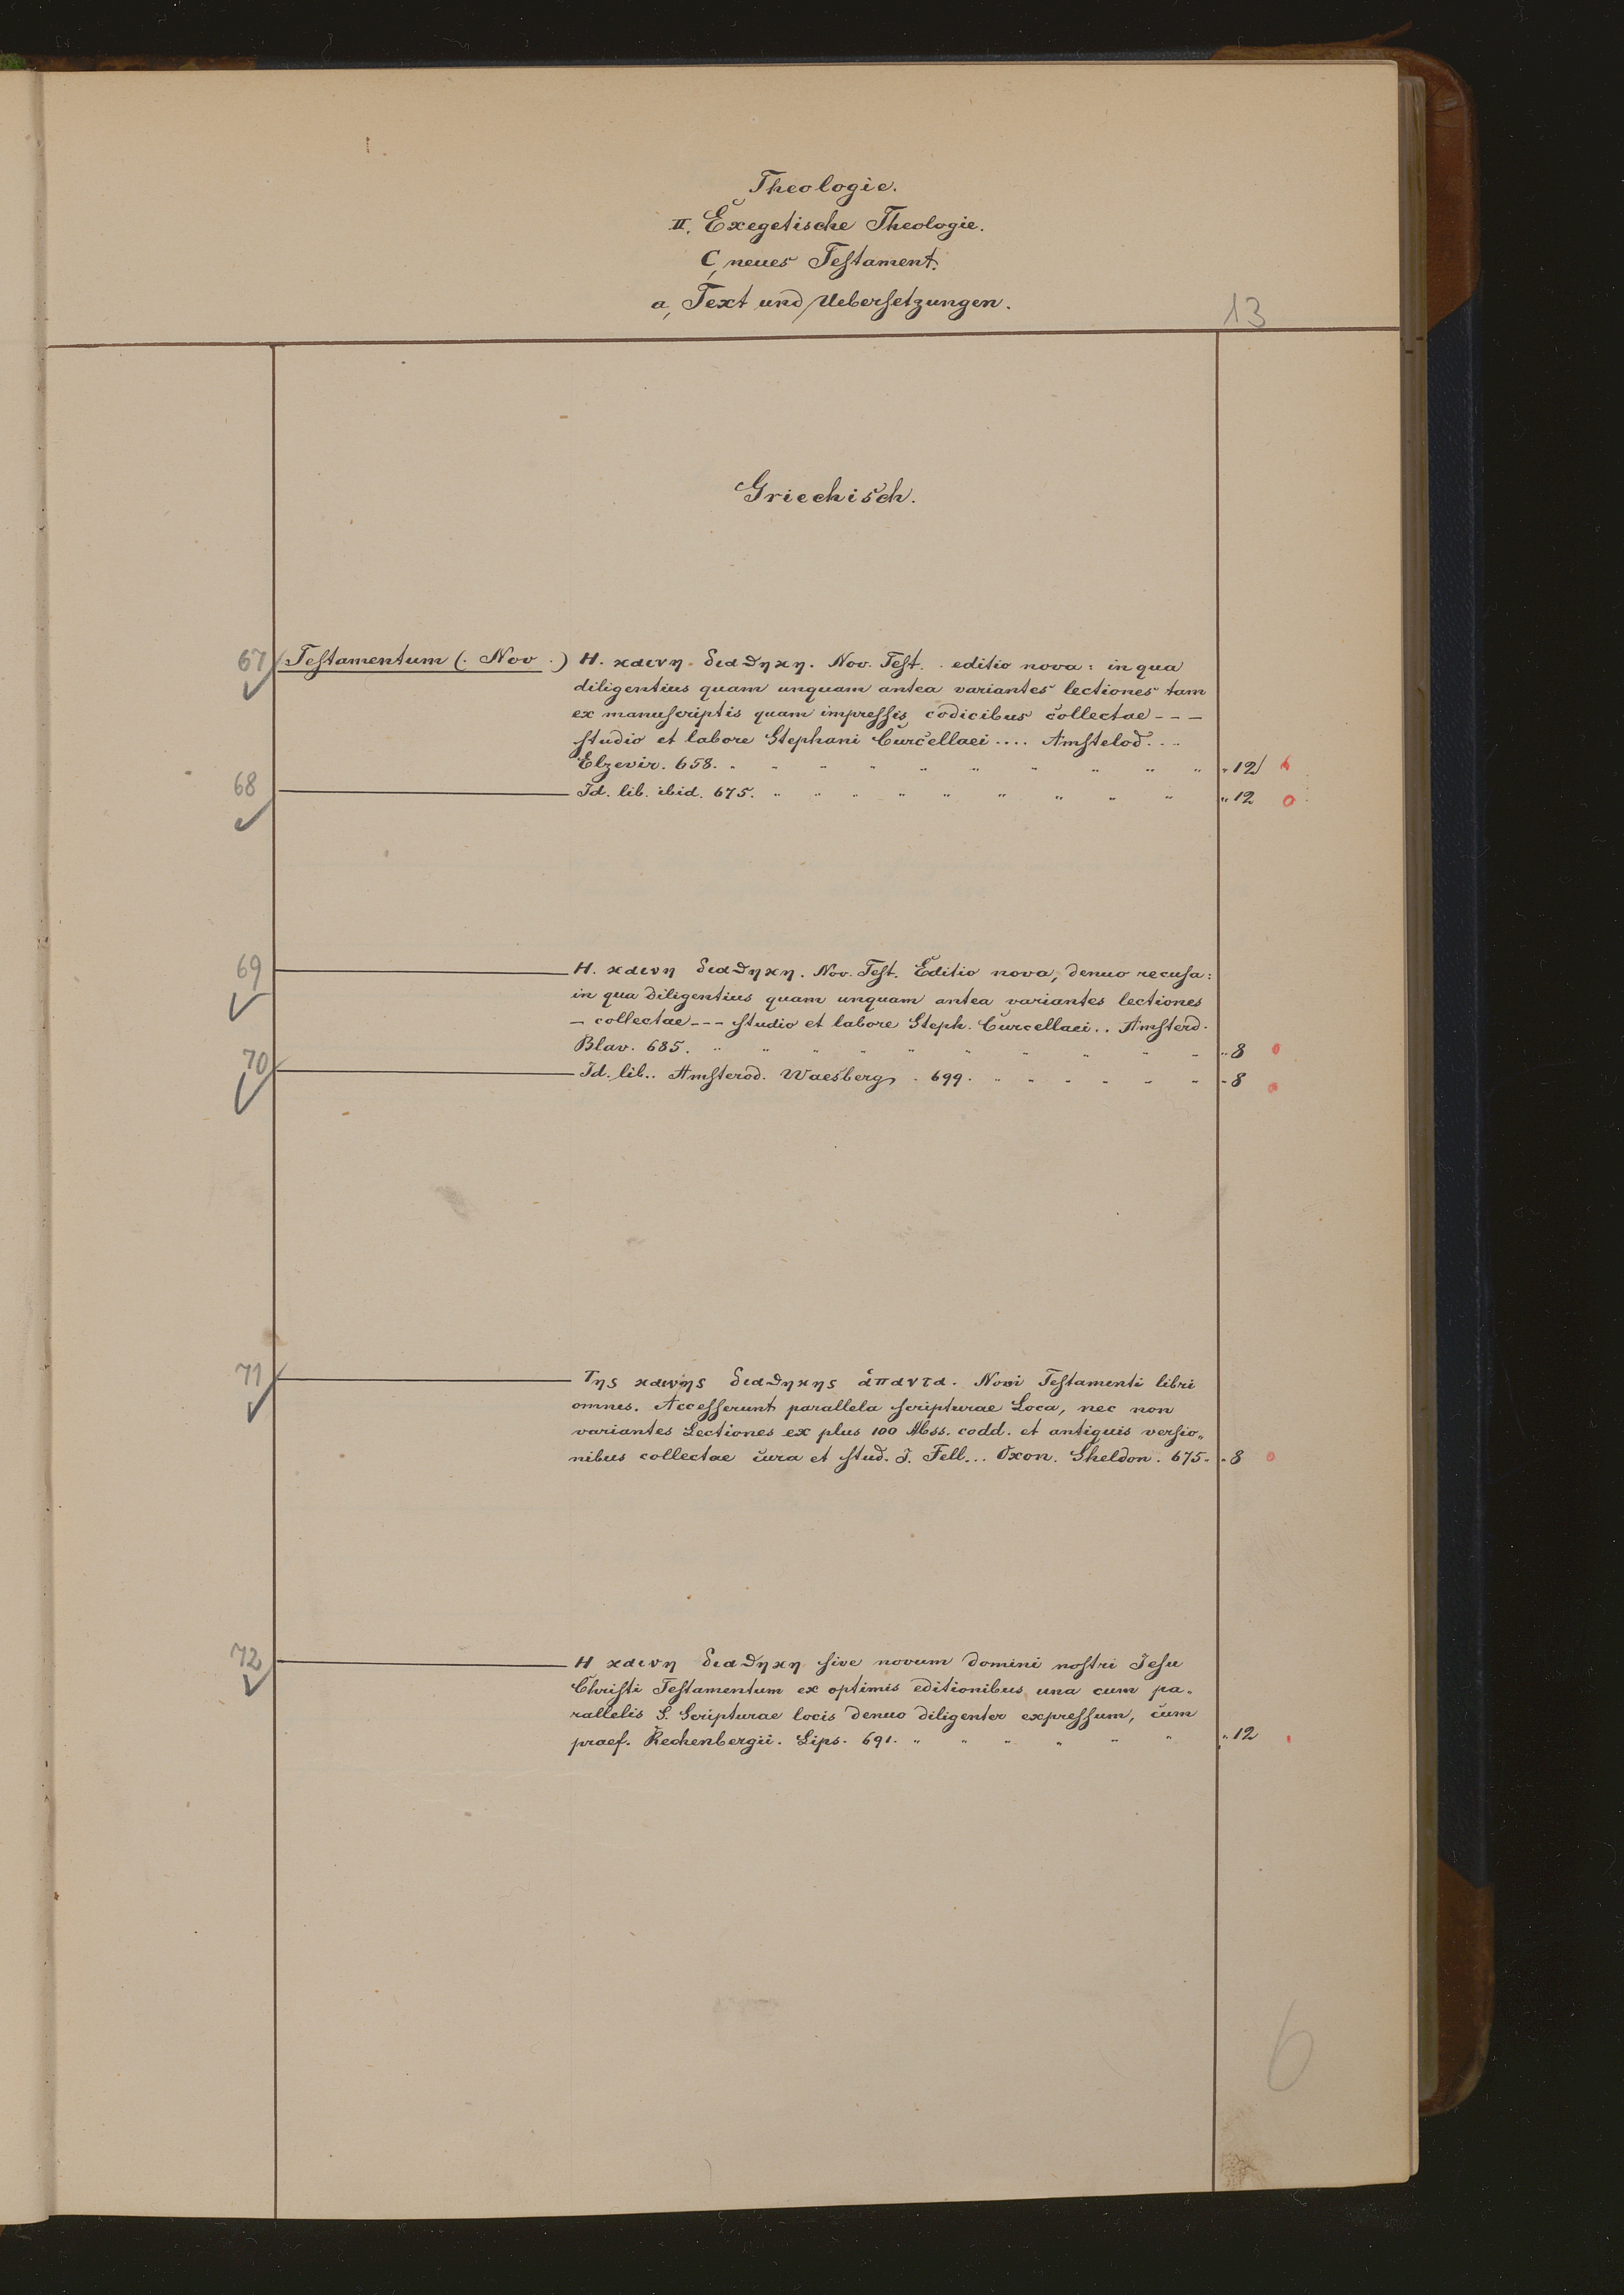 Theologie.
II. Exegetische Theologie.
C, neues Testament.
a, Text und Uebersetzungen.
13
Griechisch.
67 Testamentum (. Nov .) Η. καινη διαθηκη. Nov. Test. . editio nova : in qua
diligentius quam unquam antea variantes lectiones tam
ex manuscriptis quam impressis codicibus collectae - - -
studio et labore Stephani Curcellaei .... Amstelod. ...
Elzevir. 658. " " " " " " " " " " " 12
68 Id. lib. ibid. 675. " " " " " " " " " " 12
69 Η. καινη διαθηκη. Nov. Test. Editio nova, denuo recusa :
in qua diligentius quam unquam antea variantes lectiones
- collectae - - - studio et labore Steph. Curcellaei .. Amsterd.
Blav. 685. " " " " " " " " " " 8
70 Id. lib.. Amsterod. Waesberg. 699. " " " " " " " 8
71 Της καινης διαθηκης ἁπαντα. Novi Testamenti libri
omnes. Accesserunt parallela scripturae Loca, nec non
variantes Lectiones ex plus 100 Mss. codd. et antiquis versio„
nibus collectae cura et stud. J. Fell... Oxon. Sheldon. 675. " 8
72 Η καινη διαθηκη sive novum domini nostri Jesu
Christi Testamentum ex optimis editionibus una cum pa„
rallelis S. Scripturae locis denuo diligenter expressum, cum
praef. Rechenbergii. Lips. 691. " " " " " " " 12
6